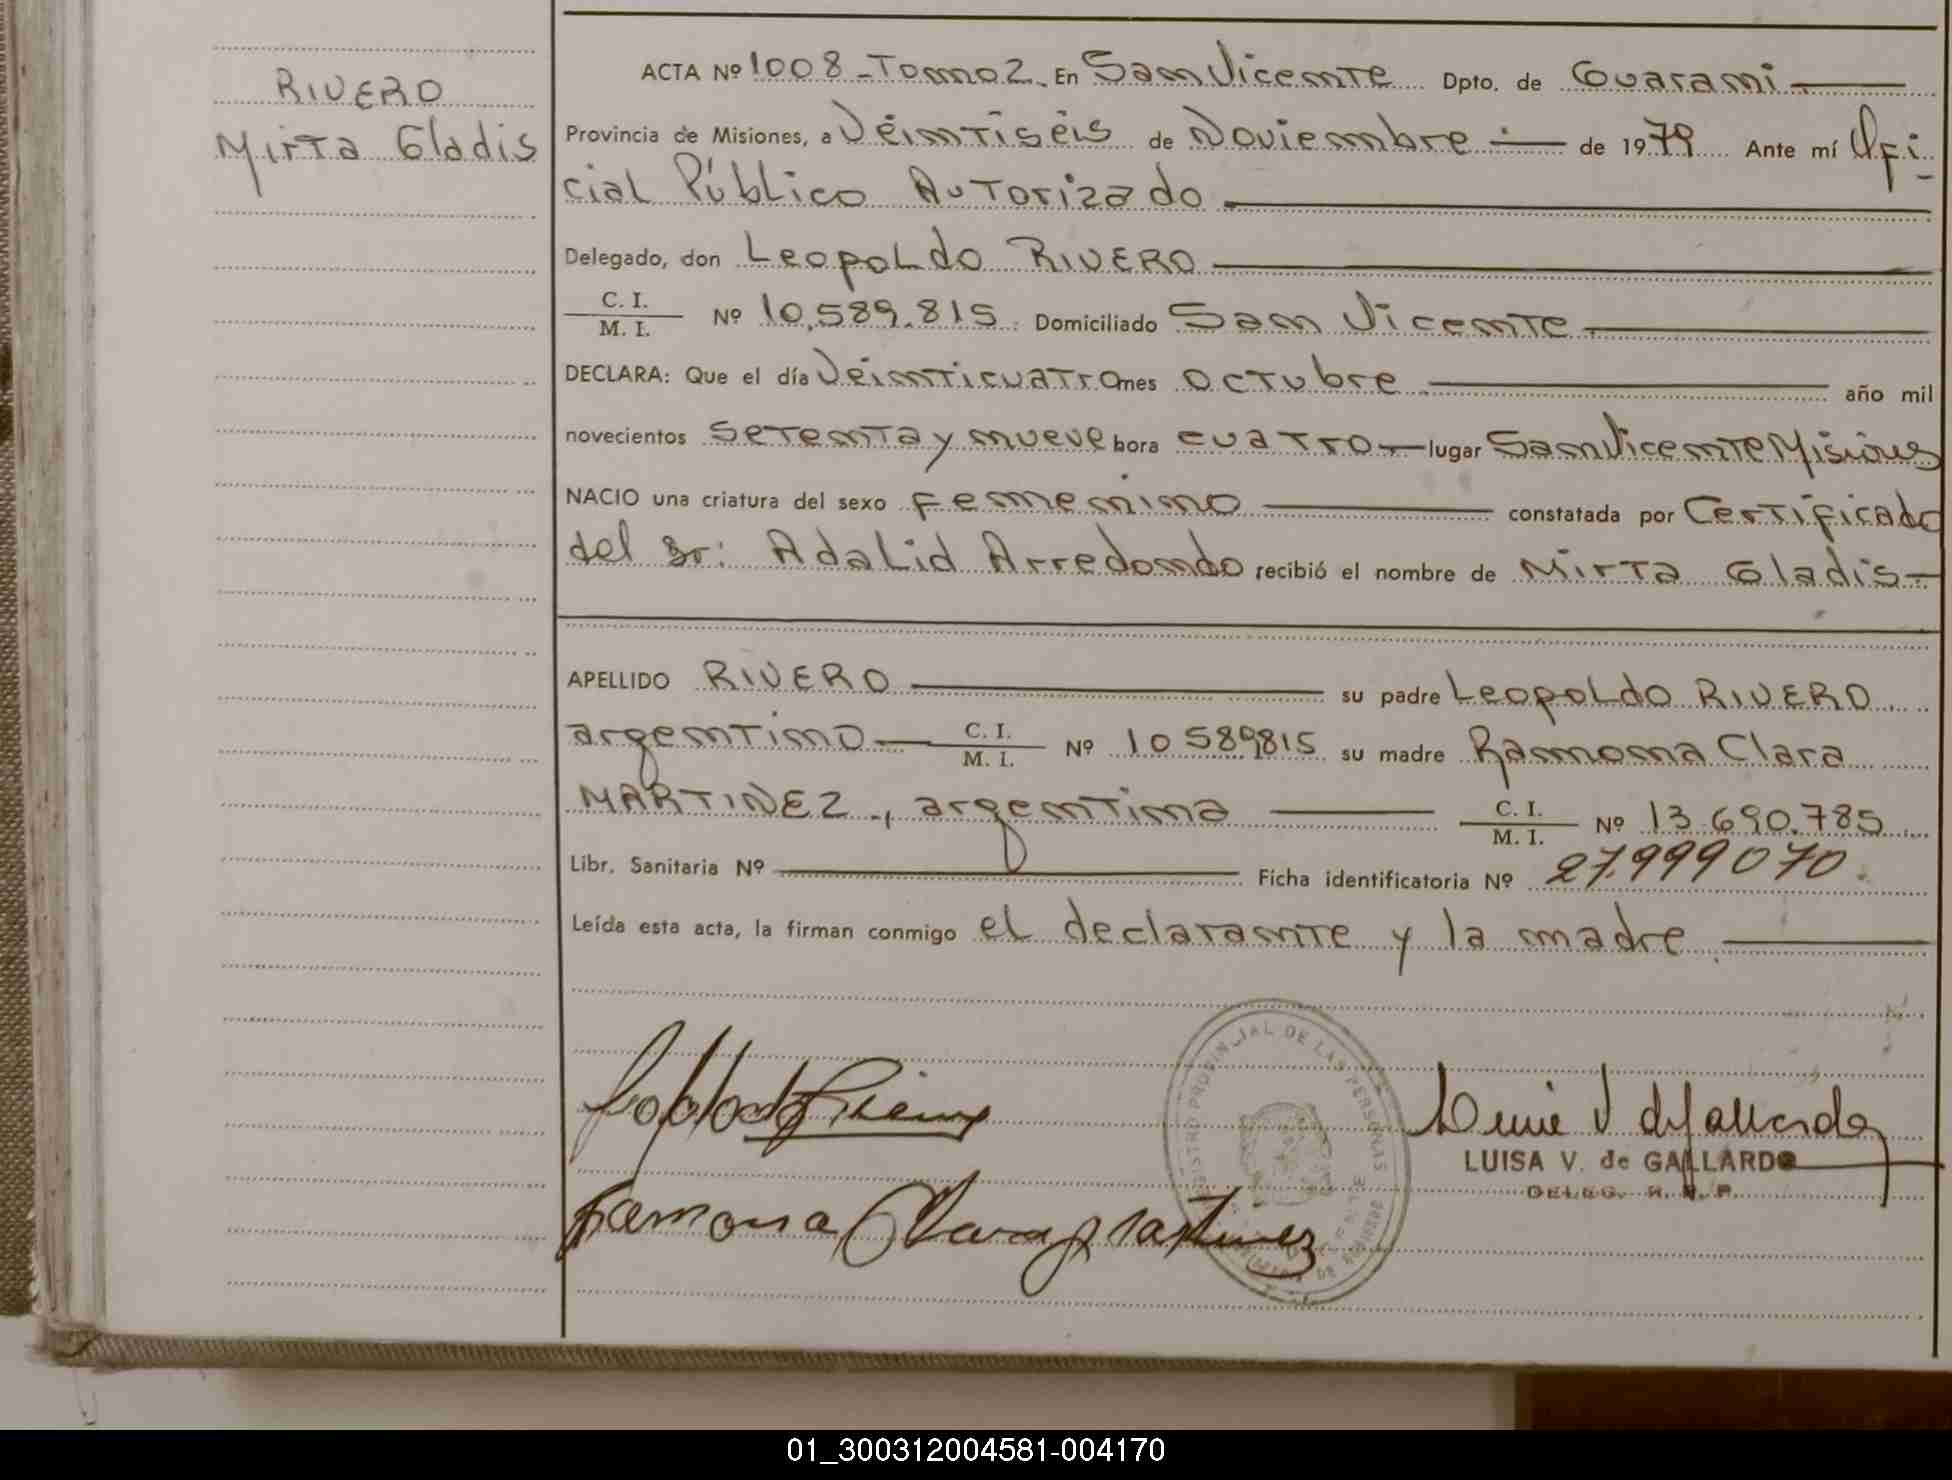 RIVERO
Mirta Gladis
ACTA Nº 1008 - Tomo 2. En San Vicente Dpto. de Guarani
Provincia de Misiones, a Veintiséis de Noviembre de 1979 Ante mí Ofi-
cial Público Autorizado
Delegado, don Leopoldo RIVERO
C. I.
M. I. Nº 10.589.815 Domiciliado San Vicente
DECLARA: Que el día Veinticuatro mes Octubre año mil
novecientos setenta y nueve hora cuatro lugar San Vicente Misiones
NACIO una criatura del sexo femenino constatada por Certificado
del Sr: Adalid Arredondo recibió el nombre de Mirta Gladis
APELLIDO RIVERO su padre Leopoldo RIVERO
argentino C. I.
M. I. Nº 10.589815 su madre Ramona Clara
MARTINEZ., argentina C. I.
M. I. Nº 13.690.785
Libr. Sanitaria Nº Ficha identificatoria Nº 27.999070.
Leída esta acta, la firman conmigo el declarante y la madre
REGISTRO PROVINCIAL DE LAS PERSONAS
Ramona Clara Martinez
LUISA V. de GALLARDO
DELEG. R. P. P.
01_300312004581-004170